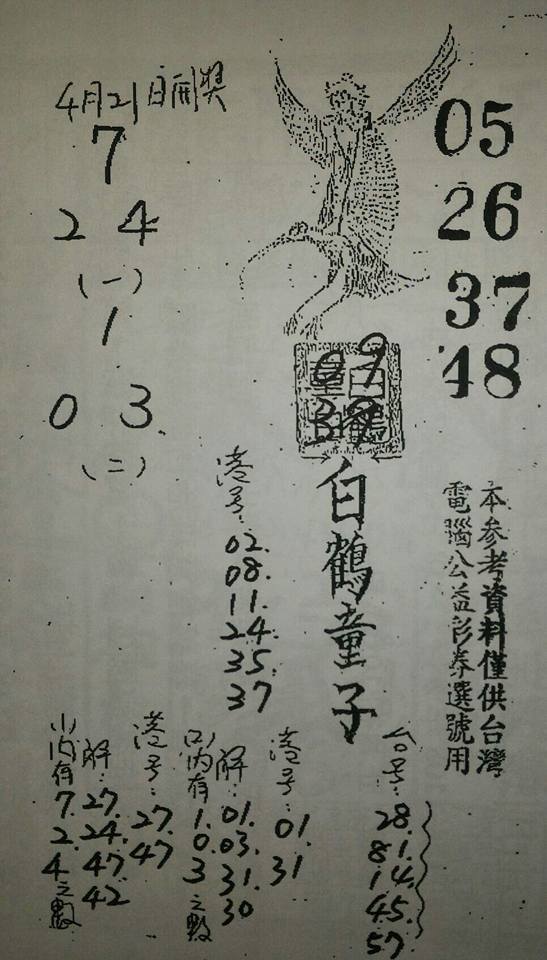 4月21日開獎
7
2 4
(一)
1
0 3
(二)
05
26
37
48
09
39
白鶴童子
本參考資料僅供台灣
電腦公益彩券選號用
港号:
02.
08.
11.
24.
35.
37
台号:
28.
81.
14.
45.
57.
港号:
01.
31
解:
01.
03.
31.
30
(二)內有
1.
0.
3
之數
港号:
27.
47
解:
27.
24.
47.
42
(一)內有
7.
2.
4
之數